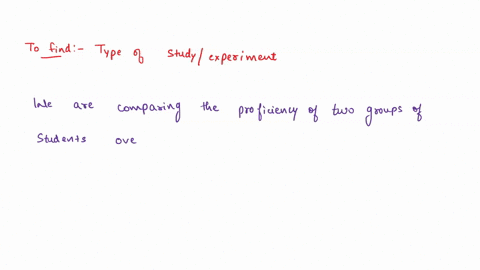 To find:- Type of study/experiment
We are comparing the proficiency of two groups of
students ove